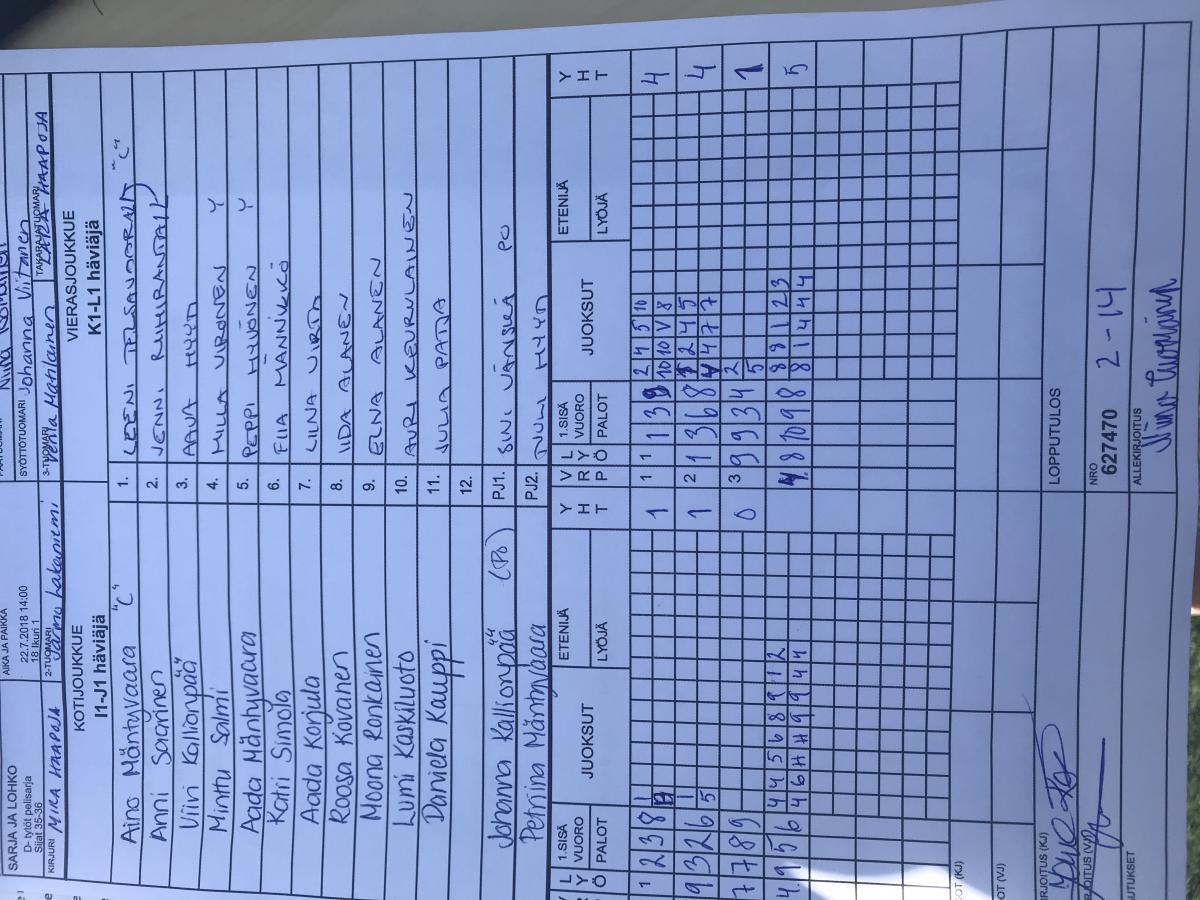 SARJA JA LOHKO
D- tytöt pelisarja
Sijat 35-36
AIKA JA PAIKKA
22.7.2018 14:00
18 Ikuri 1
SYÖTTÖTUOMARI Johanna Viitanen
KIRJURI MIRA HAAPOJA
2-TUOMARI Jarmo Lakaniemi
3-TUOMARI Venla Matilainen
TAKARAJATUOMARI LARA HAAPOJA
KOTIJOUKKUE
I1-J1 häviäjä
VIERASJOUKKUE
K1-L1 häviäjä
Aino Mäntyvaara "C"
1.
Anni Saarinen
2. JENNI
Viivi Kallionpää
3. AAVA HYYTI
Minttu Salmi
4. MILLA VIRONEN Y
Aada Mäntyvaara
5. PEPPI HYIÖNEN Y
Katri Simola
6. FIIA MÄNNIKKÖ
Aada Korjula
7. LIINA VIRTA
Roosa Kovanen
8. IIDA ALANEN
Moona Ronkainen
9. ELNA ALANEN
Lumi Kaskiluoto
10. AURI KEURULAINEN
Daniela Kauppi
11. JULIA PATJA
12.
Johanna Kallionpää (PJ)
PJ1. SUVI JÄNSKÄ PJ
Petriina Mäntyvaara
PJ2. HYYTI
1.SISÄ VUORO PALOT JUOKSUT ETENIJÄ LYÖJÄ YHT
VRP LYÖ 1.SISÄ VUORO PALOT JUOKSUT ETENIJÄ LYÖJÄ YHT
1 2 3 8 1 1
1 1 1 3 9 2 4 5 10 4
10 10 V 8
9 3 2 6 1 1
5
2 1 3 6 8 1 2 4 5 4
4 4 7 7
7 7 8 9 0
3 9 9 3 4 2 1
5
4. 9 5 6 4 4 5 6 8 9 1 2
4 6 H H 9 9 4 4
4. 8 10 9 8 8 8 1 2 3 5
8 1 4 4 4
LOPPUTULOS
NRO
627470 2 - 14
ALLEKIRJOITUS